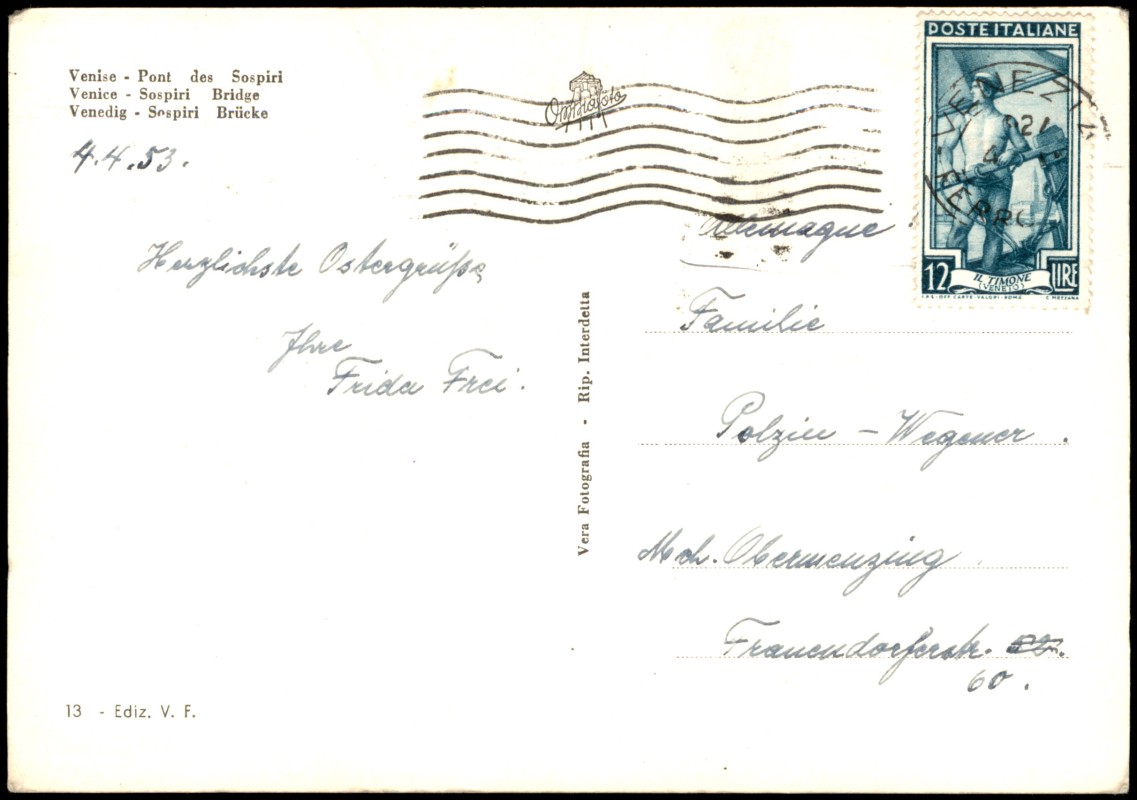 Venise - Pont des Sospiri
Venice - Sospiri Bridge
Venedig - Sospiri Brücke
4.4.53.
Herzlichste Ostergrüße
Ihre
Frida Frei.
13 - Ediz. V. F.
Vera Fotografia - Rip. Interdetta
POSTE ITALIANE
12 LIRE
IL TIMONE
(VENETO)
I.P.S-OFF.CARTE-VALORI-ROMA C.MEZZANA
Allemagne
Familie
Polzin - Wegener.
Mch. Obermenzing
Frauendorferstr.
60.